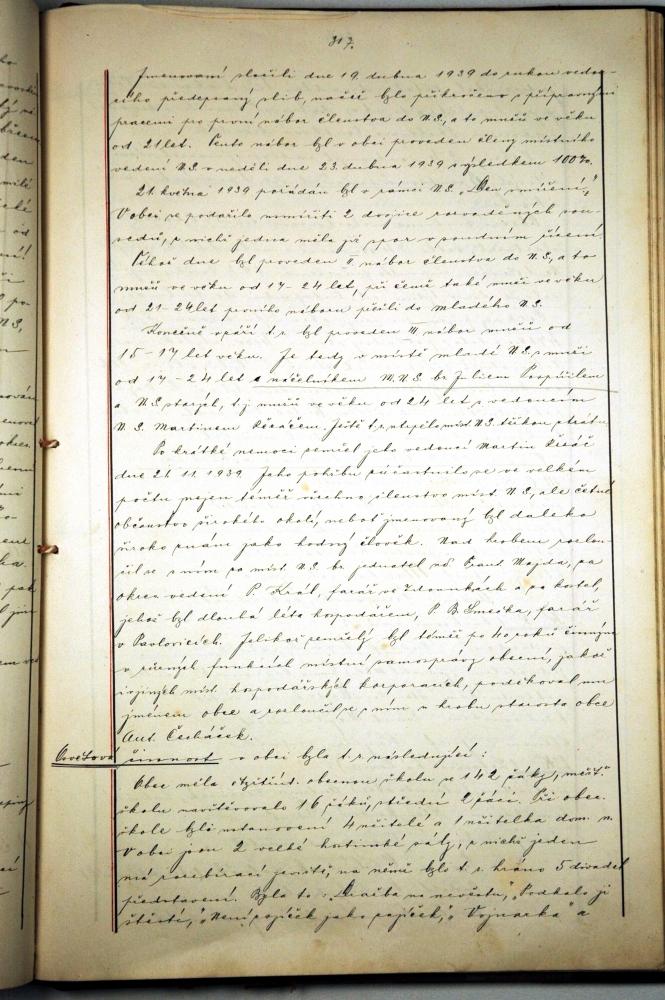 317.
Jmenovaní složili dne 19. dubna 1939 do rukou vedou-
cího předepsaný slib, načež bylo přikročeno s přípravnými
pracemi pro první nábor členstva do N.S., a to mužů ve věku
od 21 let. Tento nábor byl v obci proveden členy místního
vedení N.S. v neděli dne 23. dubna 1939 s výsledkem 100%.
21. května 1939 pořádán byl v rámci N.S. „Den smíření“,
V obci se podařilo usmířiti 2 dvojice rozvaděných sou-
sedů, z nichž jedna měla již spor v soudním řízení.
Téhož dne byl proveden II. nábor členstva do N.S., a to
mužů ve věku od 17 - 24 let, při čemž také muži ve věku
od 21 - 24 let prvního náboru přešli do mladého N.S.
Konečně v září t.r. byl proveden III nábor mužů od
15 - 17 let věku. Je tedy v místě mladé N.S. s muži
od 17 - 24 let s náčelníkem M.N.S. br. Juliem Pospíšilem
a N.S. starých, t.j. mužů ve věku od 24 let s vedoucím
N.S. Martinem Řezáčem. Ještě t.r. utrpělo míst. N.S. těžkou ztrátu.
Po krátké nemoci zemřel jeho vedoucí Martin Řezáč
dne 21. 11. 1939. Jeho pohřbu zúčastnilo se ve velkém
počtu nejen téměř všechno členstvo míst. N.S., ale četné
občanstvo širokého okolí, neboť jmenovaný byl daleko
široko znám jako hodný člověk. Nad hrobem rozlou-
čil se s ním za míst. N.S. br. jednatel Majda, za
okres. vedení P. Král, farář ve Zdounkách a za kostel,
jehož byl dlouhá léta hospodářem, P. B. Smečka, farář
v Pavlovicích. Jelikož zemřelý byl téměř po 40 roků činným
v různých funkcích místní samosprávy obecní, jakož
i v jiných míst. hospodářských korporacích, poděkoval mu
jménem obce a rozloučil se s ním u hrobu starosta obce
Ant. Čecháček.
Osvětová činnost v obci byla t.r. následující:
Obec měla obecnou školu se 142 žáky, měšť.
školu navštěvovalo 16 žáků, střední 2 žáci. Při obec.
škole byli ustanoveni 4 učitelé a 1 učitelka dom. n.
V obci jsou 2 velké hostinské sály, z nichž jeden
má rozebírací jeviště, na němž bylo t.r. hráno 5 divadel.
představení. Byla to: na nevěstu“, „Potkalo ji
štěstí“, „Není pasíček jako pasíček“, „Vojnarka“ a